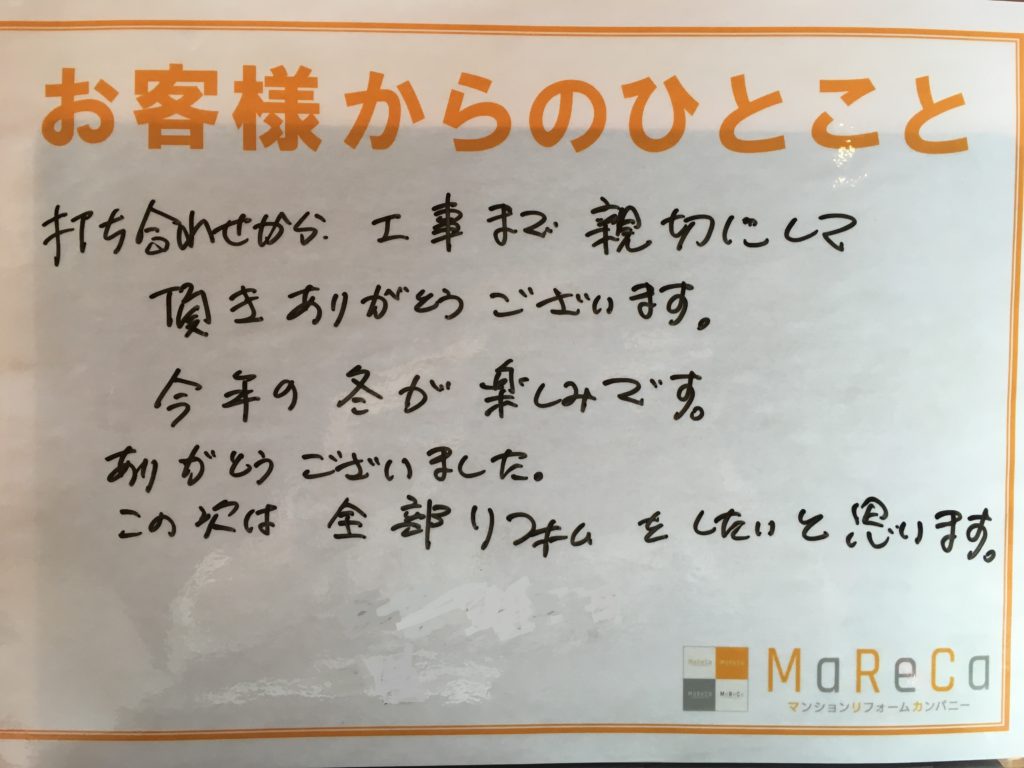 お客様からのひとこと
打ち合わせから 工事まで 親切にして
頂きありがとうございます。
今年の冬が楽しみです。
ありがとうございました。
この次は 全部リフォーム をしたいと思います。
MaReCa
マンションリフォームカンパニー